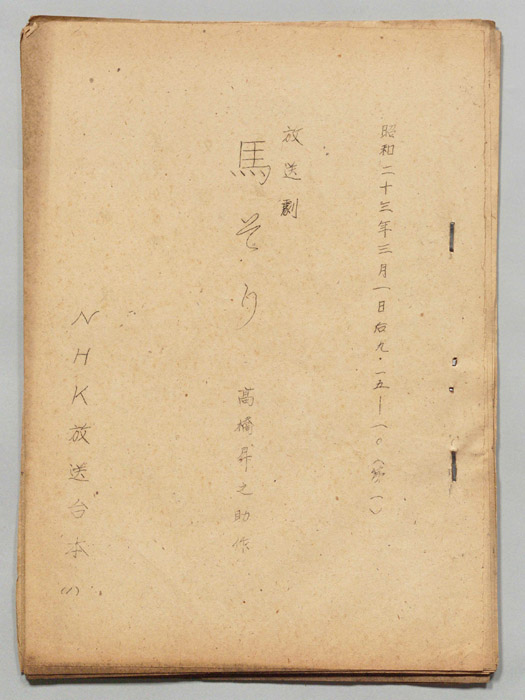 昭和二十三年三月一日后九・一五―一〇(第一)
放送劇
馬そり
高橋昇之助作
NHK放送台本(1)